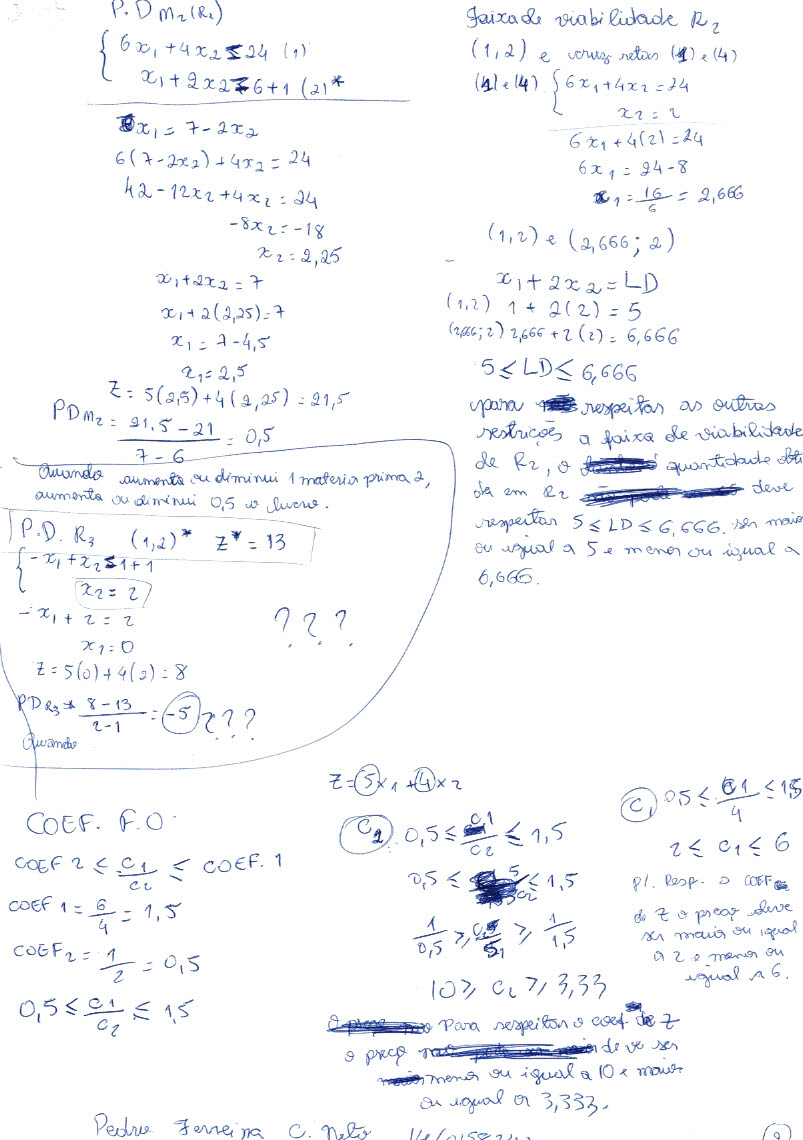 P.D M₂(R₂)
6x₁ + 4x₂ ≤ 24 (1)
x₁ + 2x₂ ≤ 6+1 (2)*
x₁ = 7 - 2x₂
6(7-2x₂) + 4x₂ = 24
42 - 12x₂ + 4x₂ = 24
-8x₂ = -18
x₂ = 2,25
x₁ + 2x₂ = 7
x₁ + 2(2,25) = 7
x₁ = 7 - 4,5
x₁ = 2,5
Z = 5(2,5) + 4(2,25) = 21,5
PDM₂ = 21,5 - 21 / 7 - 6 = 0,5
Quando aumenta ou diminui 1 materia prima 2,
aumenta ou diminui 0,5 o lucro.
P.D. R₃ (1,2)* Z* = 13
-x₁ + x₂ ≤ 1+1
x₂ = 2
-x₁ + 2 = 2
x₁ = 0
???
Z = 5(0) + 4(2) = 8
PDR₃ = 8 - 13 / 2 - 1 = -5 ???
Quando
faixa de viabilidade R₂
(1,2) e cruz retas (1) e (4)
(1) e (4) 6x₁ + 4x₂ = 24
x₂ = 2
6x₁ + 4(2) = 24
6x₁ = 24 - 8
x₁ = 16/6 = 2,666
(1,2) e (2,666; 2)
x₁ + 2x₂ = LD
(1,2) 1 + 2(2) = 5
(2,666; 2) 2,666 + 2(2) = 6,666
5 ≤ LD ≤ 6,666
para respeitar as outras
restrições a faixa de viabilidade
de R₂, o quantidade obti
da em R₂ deve
respeitar 5 ≤ LD ≤ 6,666. ser maior
ou igual a 5 e menor ou igual a
6,666.
COEF. F.O.
COEF 2 ≤ C1/C2 ≤ COEF. 1
COEF 1 = 6/4 = 1,5
COEF 2 = 1/2 = 0,5
0,5 ≤ C1/C2 ≤ 1,5
Z = 5x₁ + 4x₂
C₂ 0,5 ≤ C1/C2 ≤ 1,5
0,5 ≤ 5/C2 ≤ 1,5
1/0,5 ≥ C2/5 ≥ 1/1,5
10 ≥ C₂ ≥ 3,33
Para respeitar o coef de Z
o preço deve ser
menor ou igual a 10 e maior
ou igual a 3,333.
C₁ 0,5 ≤ C1/4 ≤ 1,5
2 ≤ C₁ ≤ 6
P/. Resp. o COEF
de Z o preço deve
ser maior ou igual
a 2 e menor ou
igual a 6.
Pedro Ferreira C. Neto